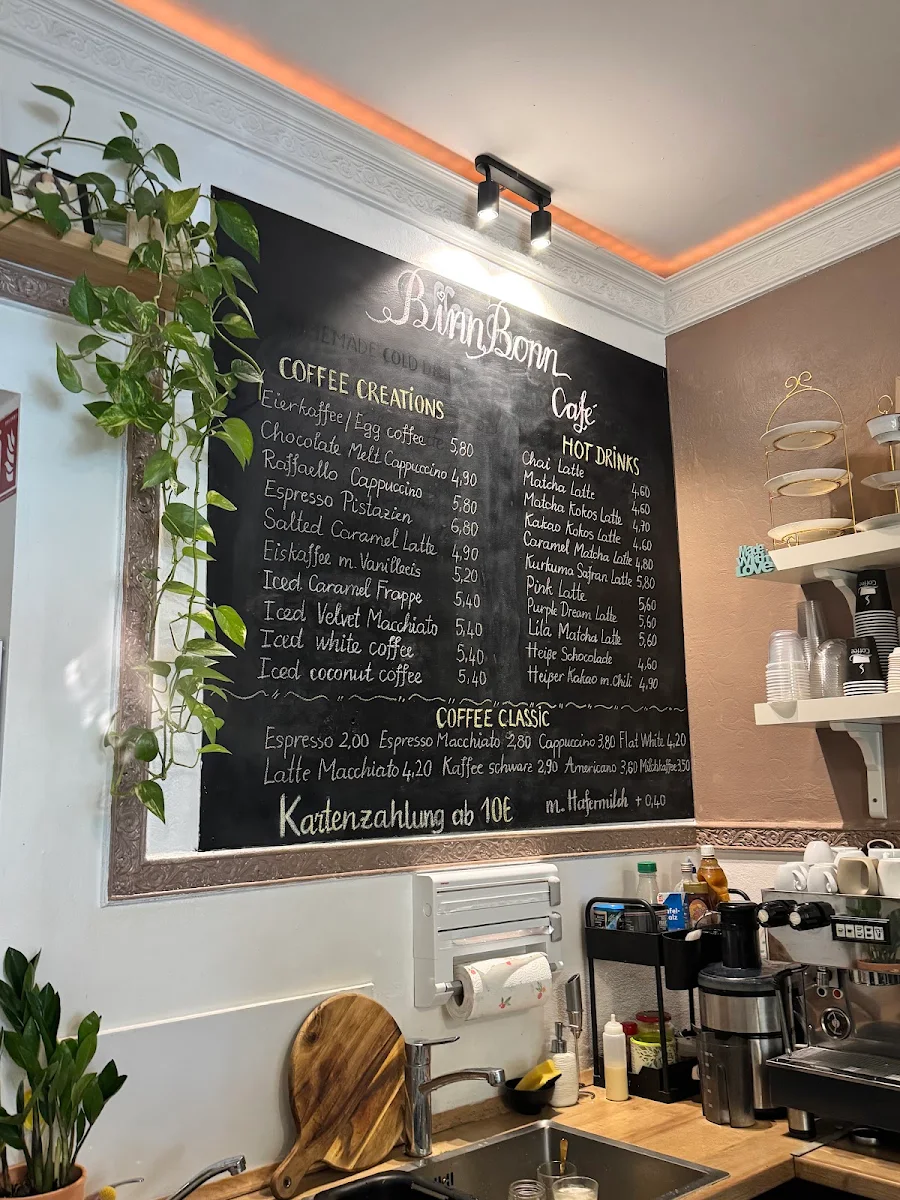 BinnBonn
Café
COFFEE CREATIONS
Eierkaffee/Egg coffee 5,80
Chocolate Melt Cappuccino 4,90
Raffaello Cappuccino 5,80
Espresso Pistazien 6,80
Salted Caramel Latte 4,90
Eiskaffee m. Vanilleeis 5,20
Iced Caramel Frappe 5,40
Iced Velvet Macchiato 5,40
Iced white coffee 5,40
Iced coconut coffee 5,40
HOT DRINKS
Chai Latte 4,60
Matcha Latte 4,60
Matcha Kokos Latte 4,70
Kakao Kokos Latte 4,60
Caramel Matcha Latte 4,80
Kurkuma Safran Latte 5,80
Pink Latte 5,60
Purple Dream Latte 5,60
Lila Matcha Latte 5,60
Heiße Schocolade 4,60
Heißer Kakao m. Chili 4,90
COFFEE CLASSIC
Espresso 2,00 Espresso Macchiato 2,80 Cappuccino 3,80 Flat White 4,20
Latte Macchiato 4,20 Kaffee schwarz 2,90 Americano 3,60 Milchkaffee 3,50
Kartenzahlung ab 10€ m. Hafermilch + 0,40
Made
With
LOVE
Coffee
Coffee